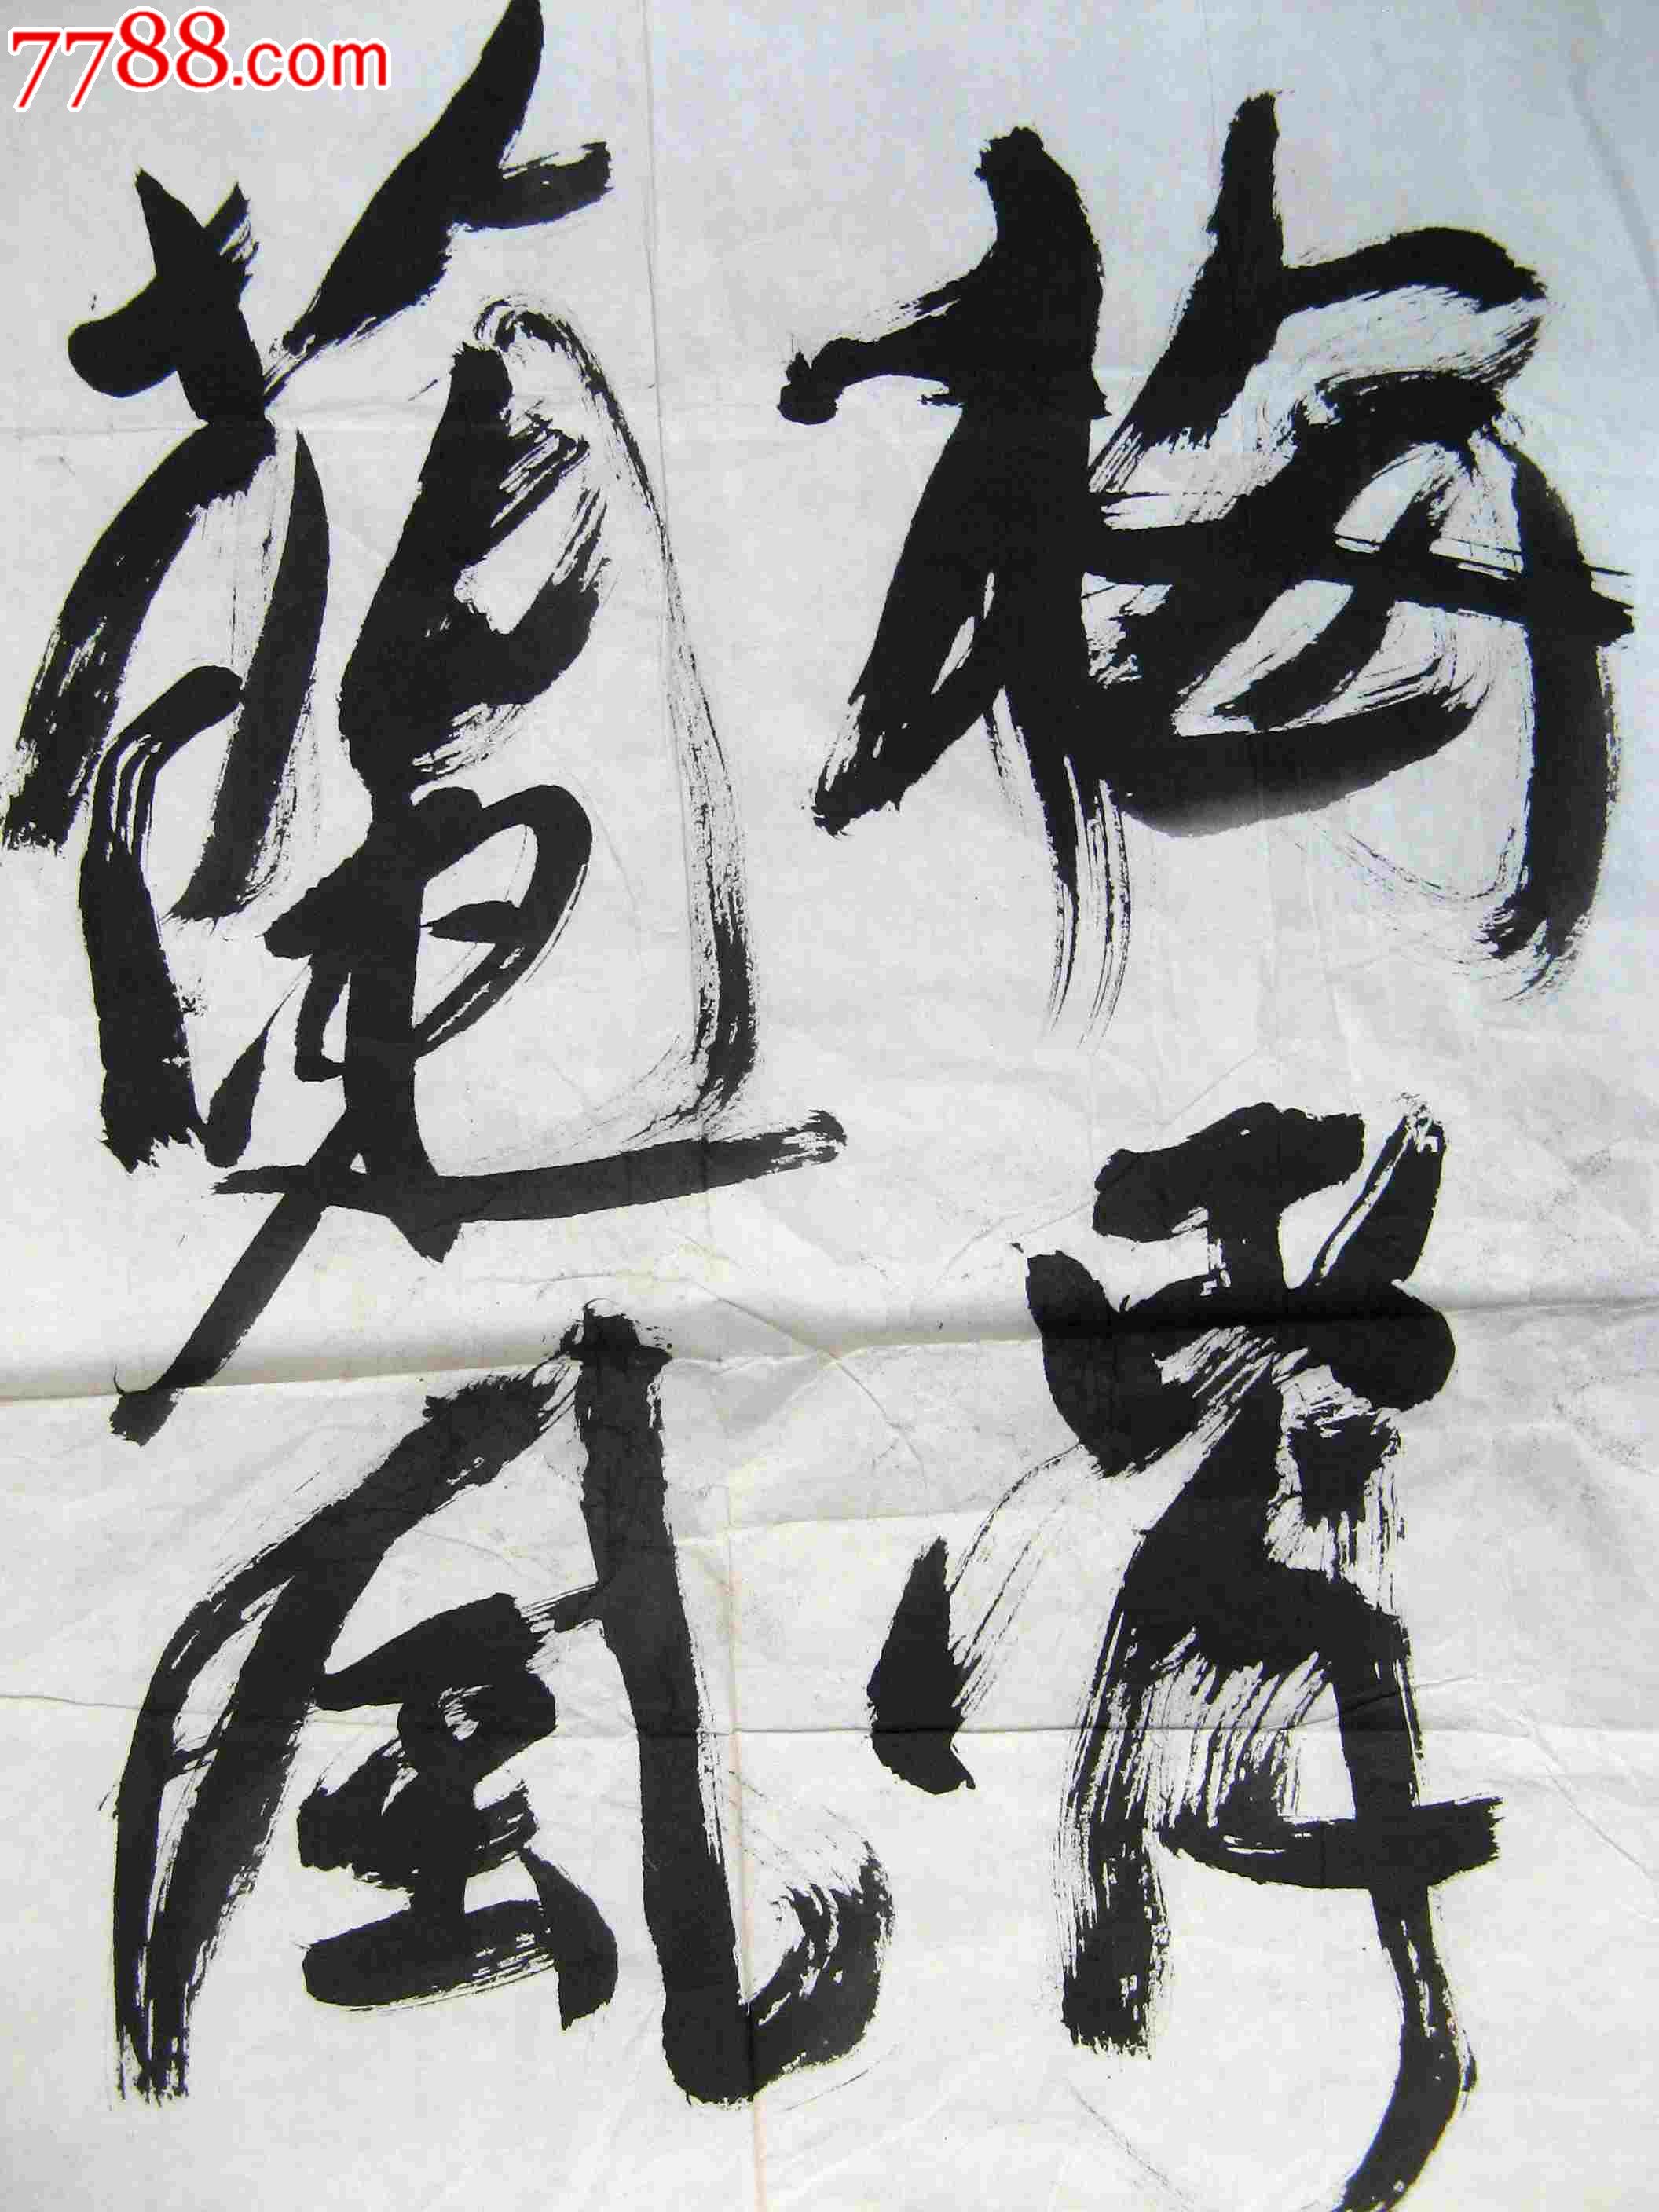 梅
蘭風
7788.com